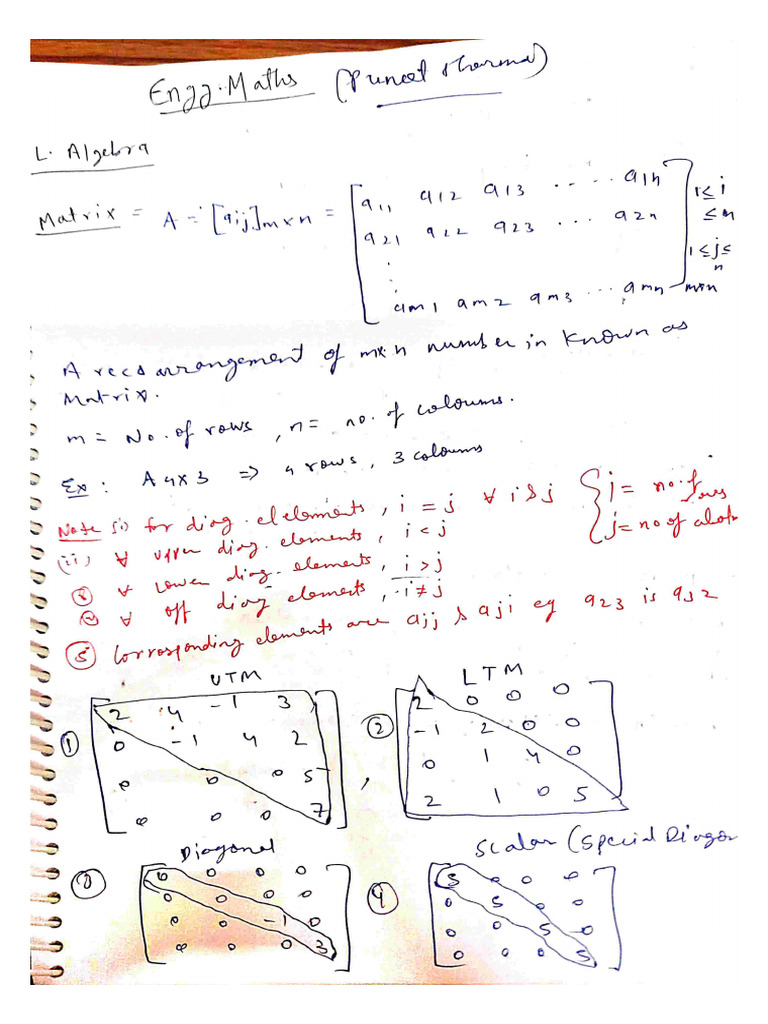 Engg. Maths (Puneet Sharma)
L. Algebra
Matrix = A = [aij]m×n = [ a11 a12 a13 ..... a1n
a21 a22 a23 ... a2n
:
am1 am2 am3 ... amn ] m×n
1≤i
≤m
1≤j≤
n
A arrangement of m×n number in known as
Matrix.
m = No. of rows, n = no. of coloums.
Ex: A 4×3 => 4 rows, 3 coloums
Note (i) for diag. elelements, i = j ∀ i & j { j = no. of rows
j = no of
(ii) ∀ upper diag. elements, i < j
∀ lower diag. elements, i > j
∀ off diag elements, i ≠ j
(5) Corrosponding elements are ajj & aji eg a23 is a32
UTM
LTM
(1) [ 2 4 -1 3
0 -1 4 2
0 0 0 5
0 0 0 7 ] ,
(2) [ 2 0 0 0
-1 2 0 0
0 1 4 0
2 1 0 5 ]
Diagonal
Scalar (Special Diagon
(3) [ 0 0 0 0
0 0 0 0
0 0 -1 0
0 0 0 3 ]
(4) [ 5 0 0 0
0 5 0 0
0 0 5 0
0 0 0 5 ]